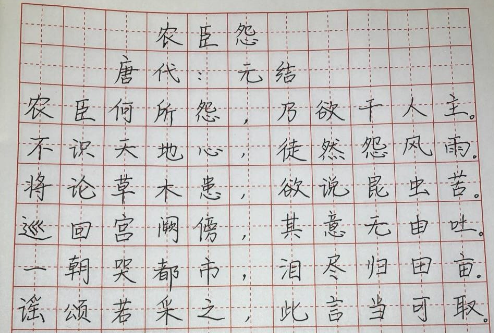 农臣怨
唐代：元结
农臣何所怨，乃欲干人主。
不识天地心，徒然怨风雨。
将论草木患，欲说昆虫苦。
巡回宫阙傍，其意无由吐。
一朝哭都市，泪尽归田亩。
谣颂若采之，此言当可取。